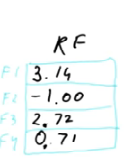 RF
F1 3.14
F2 -1.00
F3 2.72
F4 0.71